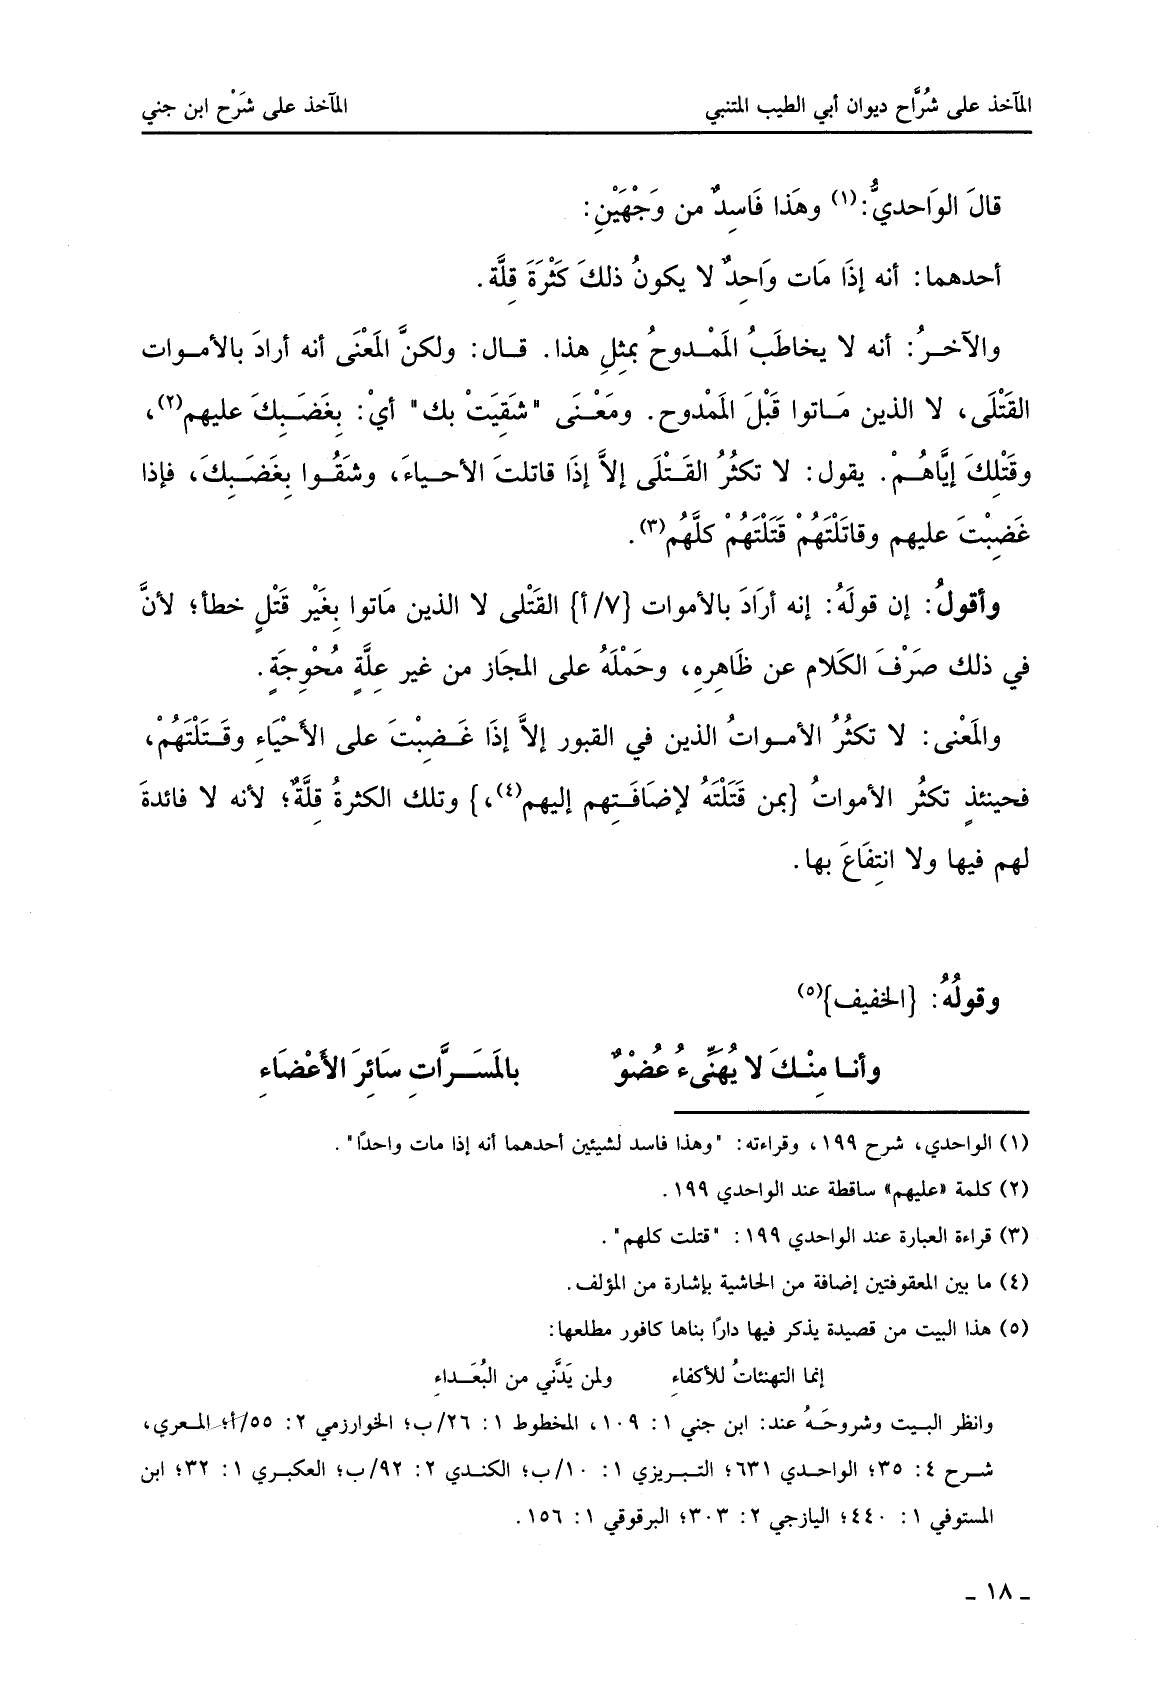 المآخذ على شُرَّاح ديوان أبي الطيب المتنبي المآخذ على شَرْح ابن جني
قالَ الوَاحديُّ:(١) وهَذا فَاسِدٌ من وَجْهَيْنِ:
أحدهما: أنه إذَا مَات وَاحِدٌ لا يكونُ ذلكَ كَثْرَةَ قِلَّة.
والآخـرُ: أنه لا يخاطَبُ المَمْـدوحُ بمثِلِ هذا. قـال: ولكنَّ المَعْنَى أنه أرادَ بالأمـوات
القَتْلَى، لا الذين مَـاتوا قَبْلَ المَمْدوح. ومَعْـنَى "شَقِيَتْ بك" أيْ: بِغَضَـبِكَ عليهم(٢)،
وقَتْلِكَ إيَّاهُـمْ. يقول: لا تكثُرُ القَـتْلَى إلاَّ إذَا قاتلتَ الأحـياءَ، وشَقُـوا بِغَضَـبِكَ، فإذا
غَضِبْتَ عليهم وقاتَلْتَهُمْ قَتَلْتَهُمْ كلَّهُم(٣).
وأقولُ: إن قولَهُ: إنه أرَادَ بالأموات {٧/أ} القَتْلى لا الذين مَاتوا بِغَيْر قَتْلٍ خطأ؛ لأنَّ
في ذلك صَرْفَ الكَلام عن ظَاهِرِهِ، وحَمْلَهُ على المجَاز من غير عِلَّةٍ مُحْوِجَةٍ.
والمَعْنى: لا تكثُرُ الأمـواتُ الذين في القبور إلاَّ إذَا غَـضِبْتَ على الأحْيَاءِ وقَـتَلْتَهُمْ،
فحينئذٍ تكثُر الأمواتُ {بمن قَتَلْتَهُ لإضَافَـتِهم إليهم(٤)،} وتلك الكثرةُ قِلَّةٌ؛ لأنه لا فائدةَ
لهم فيها ولا انتِفَاعَ بها.
وقولُهُ: {الخفيف}(٥)
وأنـا مِنْـكَ لا يُهَنِّىءُ عُضْوٌ بالمَسَـرَّاتِ سَائِرَ الأَعْضَاءِ
(١) الواحدي، شرح ١٩٩، وقراءته: "وهذا فاسد لشيئين أحدهما أنه إذا مات واحدًا".
(٢) كلمة «عليهم» ساقطة عند الواحدي ١٩٩.
(٣) قراءة العبارة عند الواحدي ١٩٩: "قتلت كلهم".
(٤) ما بين المعقوفتين إضافة من الحاشية بإشارة من المؤلف.
(٥) هذا البيت من قصيدة يذكر فيها دارًا بناها كافور مطلعها:
إنما التهنئاتُ للأكفاءِ ولمن يَدَّني من البُعَـداءِ
وانظر البـيت وشروحَـهُ عند: ابن جني ١: ١٠٩، المخطوط ١: ٢٦/ب؛ الخوارزمي ٢: ٥٥/أ؛ المـعري،
شرح ٤: ٣٥؛ الواحـدي ٦٣١؛ التبـريزي ١: ١٠/ب؛ الكنـدي ٢: ٩٢/ب؛ العكبري ١: ٣٢؛ ابن
المستوفي ١: ٤٤٠؛ اليازجي ٢: ٣٠٣؛ البرقوقي ١: ١٥٦.
ـ ١٨ ـ